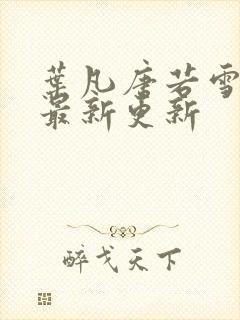 葉凡唐若雪
最新更新
醉戈天下